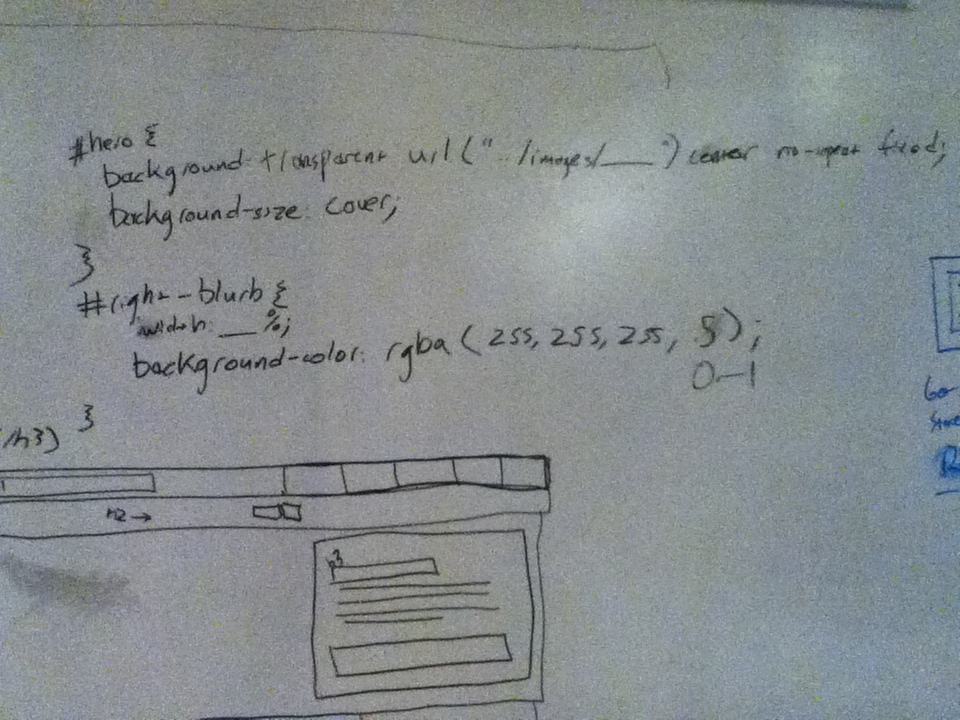 #hero {
background: transparent url("../images/___") center no-repeat fixed;
background-size: cover;
}
#right-blurb {
width: __%;
background-color: rgba(255, 255, 255, .5);
0-1
}
/h3)
h2 →
h3